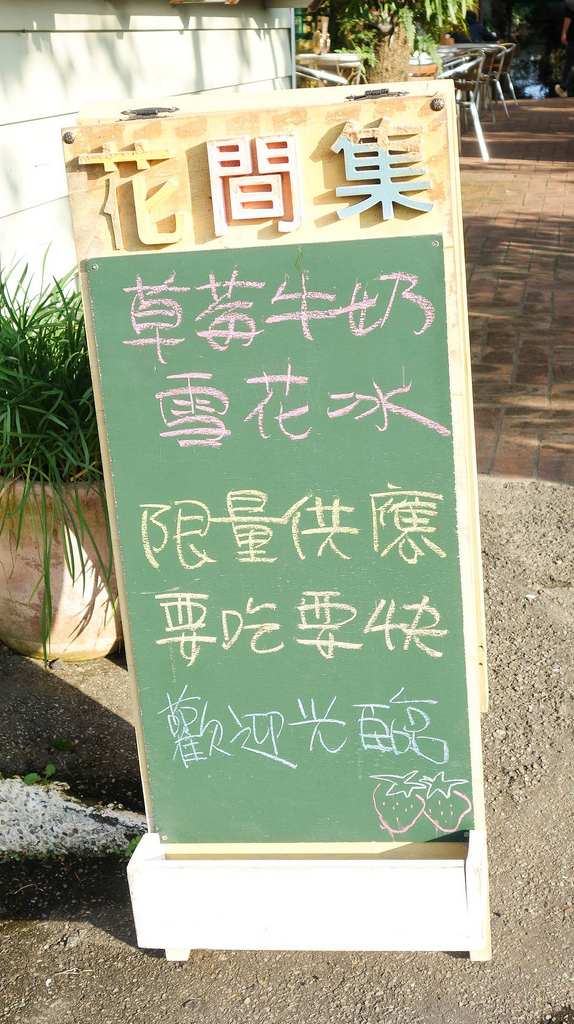 花間集
草莓牛奶
雪花冰
限量供應
要吃要快
歡迎光臨